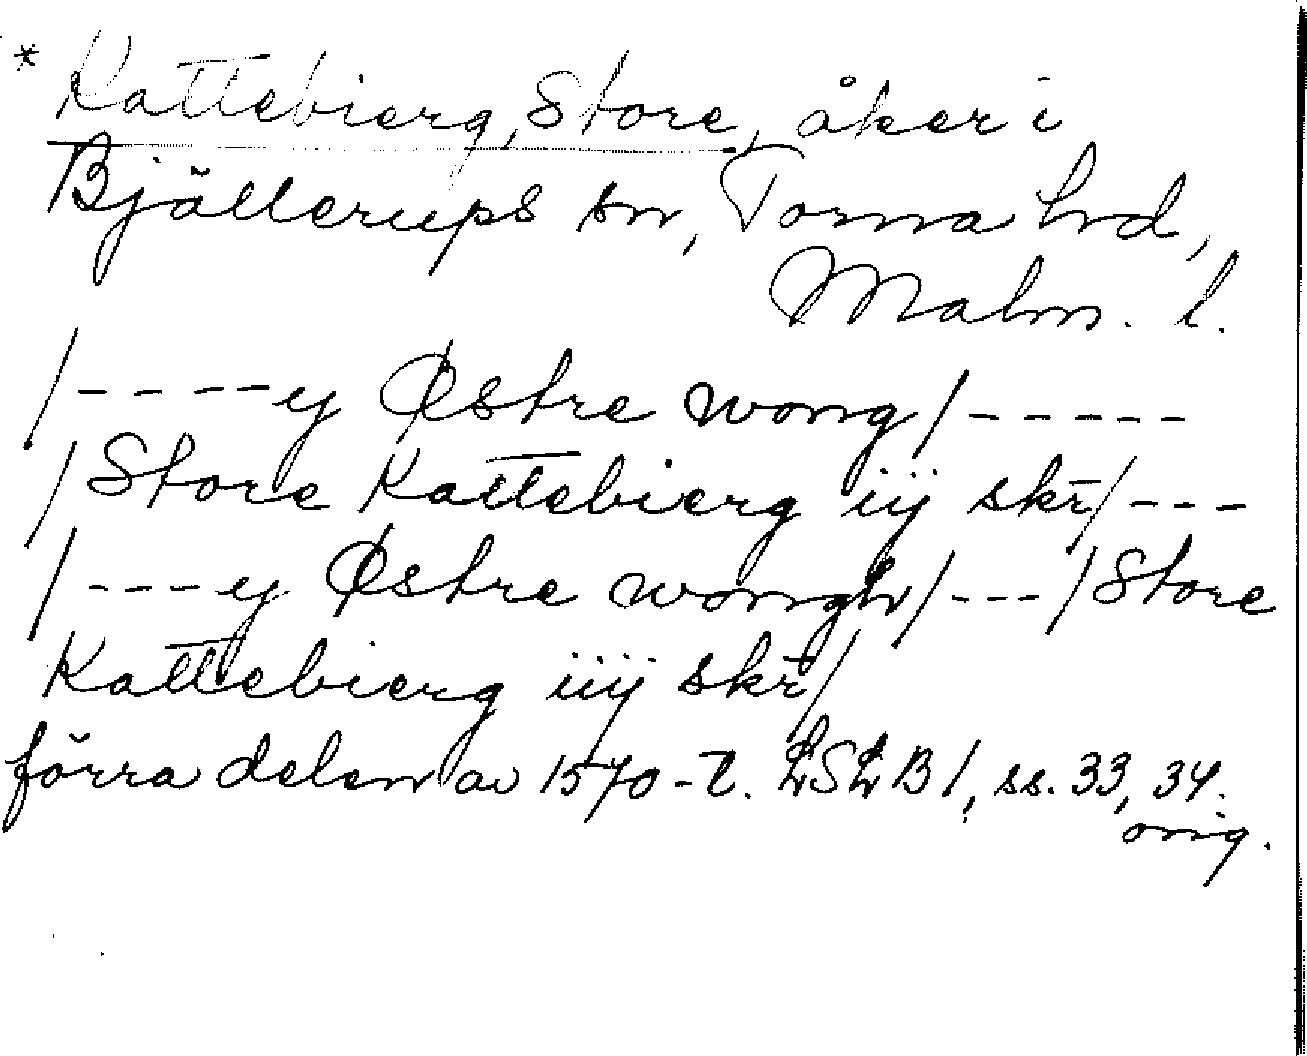 * Kattebierg, Store, åker i
Bjällerups sn, Torna hrd,
Malm. l.
/----y Østre wong/-----
/Store Kattebierg iij skr̄/---
/---y Østre wongh/---/Store
Kattebierg iiij skr̄/
förra delen av 1570-t. LSLB 1, ss. 33, 34.
orig.